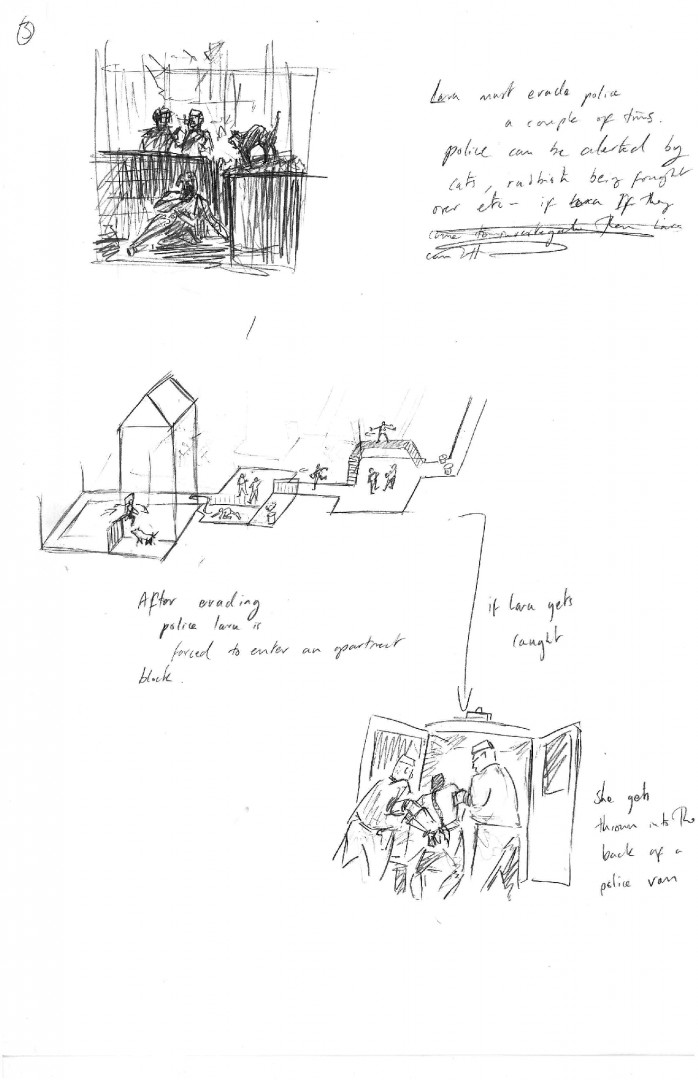 3
Lara must evade police
a couple of times.
police can be alerted by
cats, rubbish being fought
over etc - if Lara If they
come to investigate then Lara
can
After evading
police Lara is
forced to enter an apartment
block.
if Lara gets
caught
She gets
thrown into the
back of a
police van